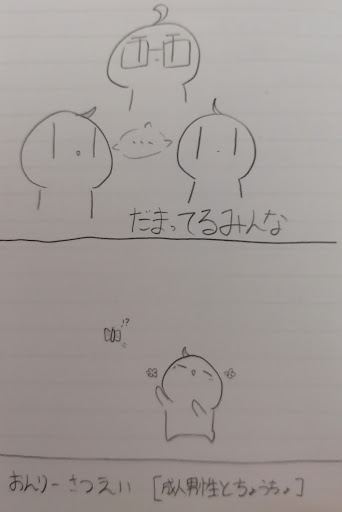 …
だまってるみんな
!?
おんりーさつえい [成人男性とちょうちょ]